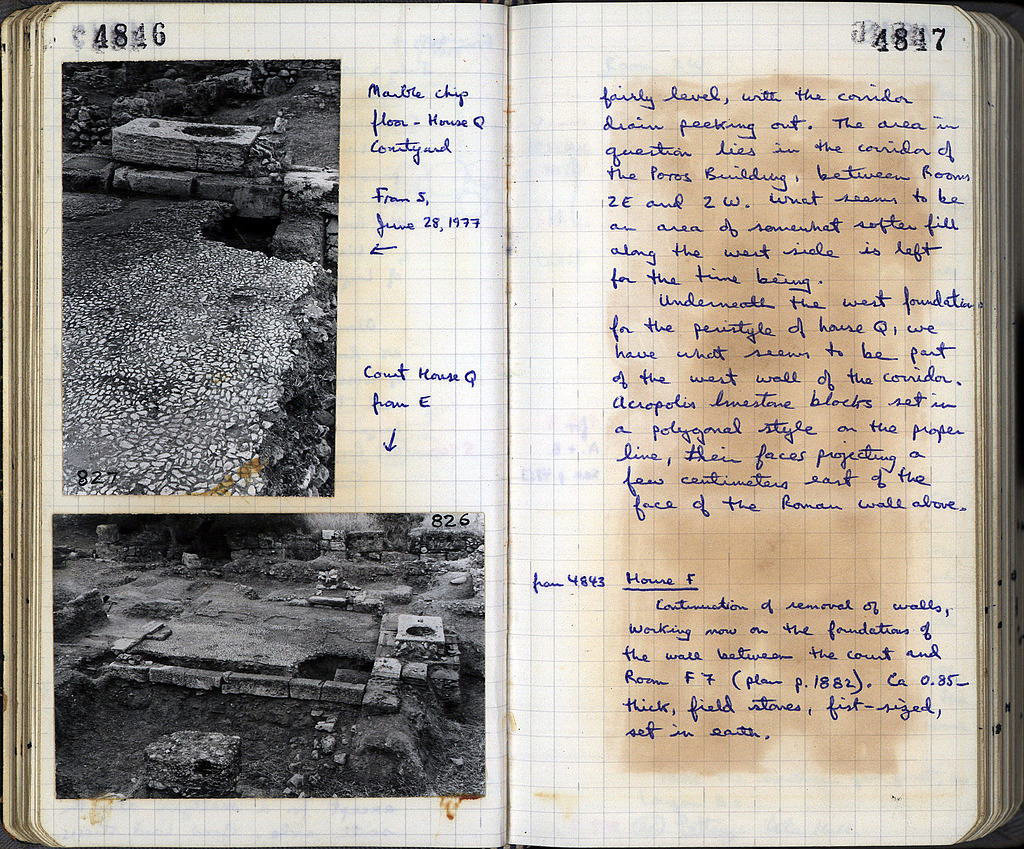 4846
Marble chip
floor - House Q
Courtyard
From S,
June 28, 1977
←
827
Court House Q
from E
↓
826
4847
fairly level, with the corridor
drain peeking out. The area in
question lies in the corridor of
the Poros Building, between Rooms
2E and 2W. What seems to be
an area of somewhat softer fill
along the west side is left
for the time being.
Underneath the west foundation
for the peristyle of house Q, we
have what seems to be part
of the west wall of the corridor.
Acropolis limestone blocks set in
a polygonal style on the proper
line, their faces projecting a
few centimeters east of the
face of the Roman wall above.
from 4843 House F
Continuation of removal of walls,
working now on the foundations of
the wall between the court and
Room F7 (plan p. 1882). Ca 0.85-
thick, field stones, fist-sized,
set in earth.